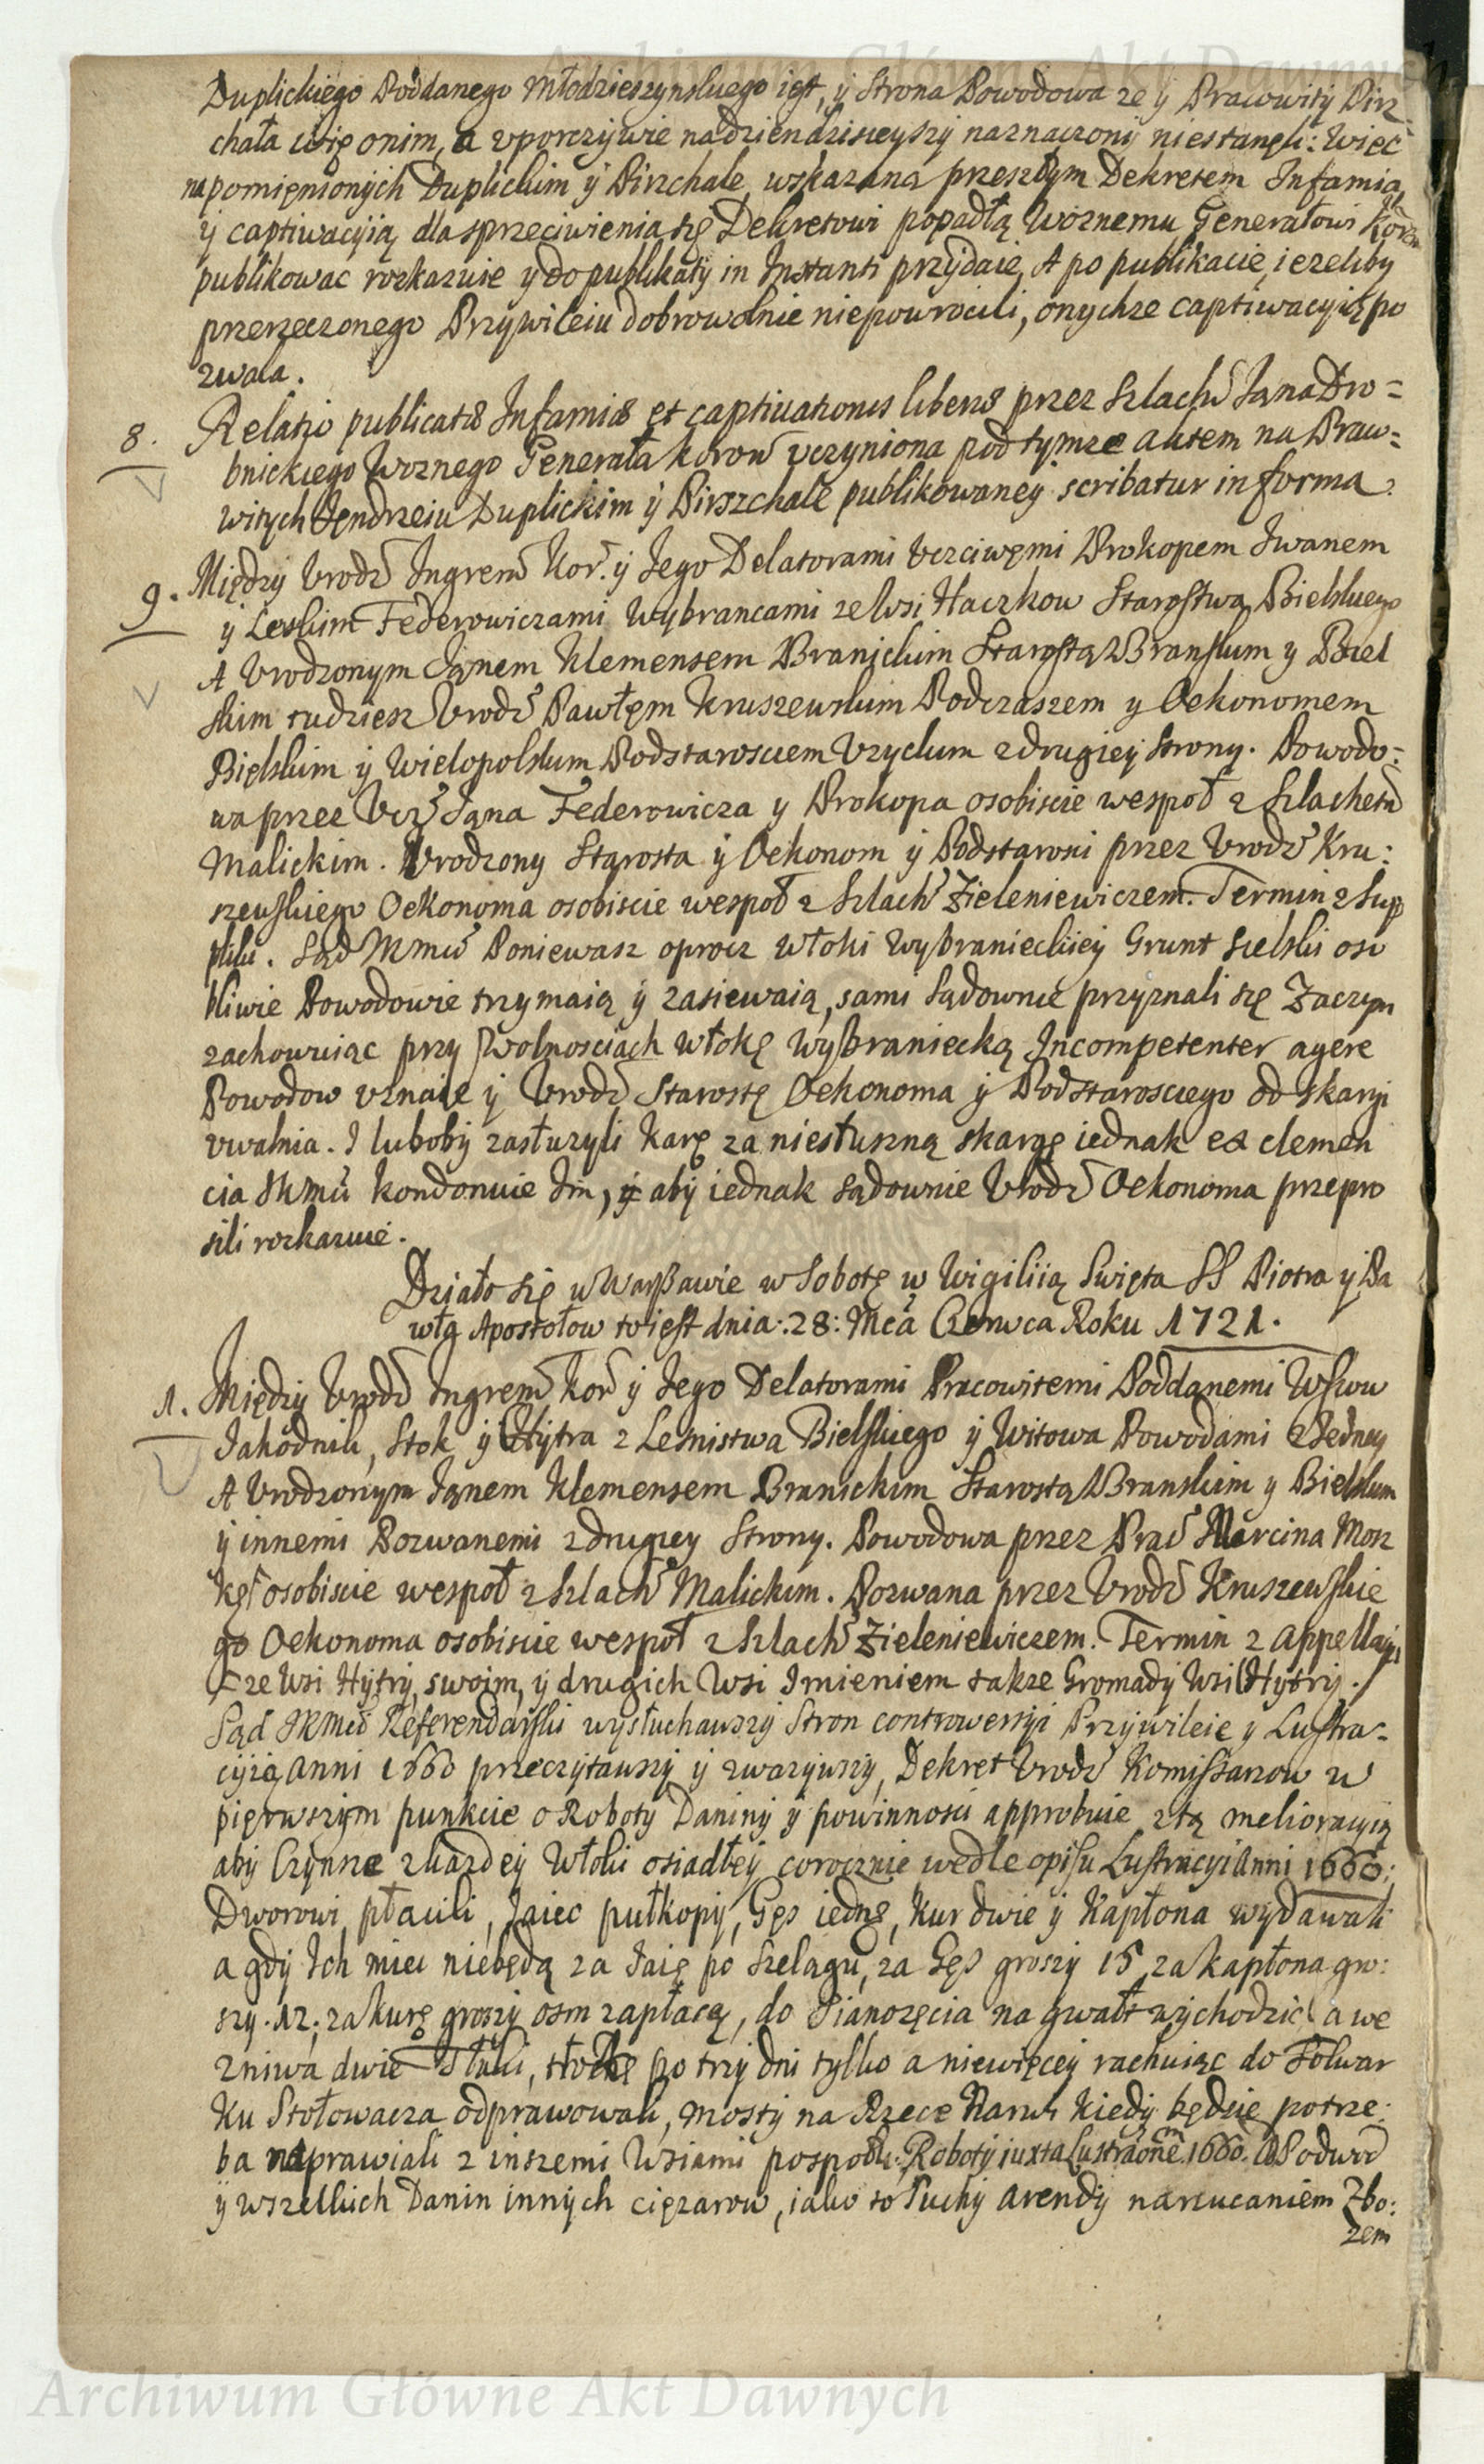 Archiwum Główne Akt Dawnych
Duplickiego Poddanego Młodzieszynskiego iest, y Strona Powodowa ze y Pracowity Pirz
chała się onim, a vporczywie nadziendzisieyszy naznaczony niestanęli: Więc
na pomięnionych Duplickim y Pirzchale wskazaną przeszłym Dekretem Infamią
y captiwacyią dla sprzeciwienia się Dekretowi popadłą Woznemu Generałowi Koro
publikowac rozkazuie y do publikaty in Instanti przydaie, A po publikacie iezeliby
przerzeczonego Przywileiu dobrowolnie niepowrocili, onychze captiwacyią po
zwala.
8. Relatio publicatæ Infamiæ et captiuationis liberæ przez Szlach Jana Dro=
bnickiego Woznego Generała koron vczyniona pod tymze aktem na Praw=
witych Jędrzeiu Duplickim y Pirszchale publikowaney scribatur in forma.
9. Między Vrodz Ingrem Kor. y Jego Delatorami Vczciwęmi Prokopem Iwanem
y Leskim Federowiczami Wybrancami ze Wsi Haczkow Starostwa Bielskiego
A Vrodzonym Janem Klemensem Branickim Starostą Branskim y Biel
skim tudziesz Vrodz Pawłęm Kruszewskim Podczaszem y Oekonomem
Bielskim y Wielopolskim Podstarosciem Vzyckim z drugiey strony. Powodo=
wa przez Vcz Jana Federowicza y Prokopa osobiscie wespoł z Szlachetn
Malickim. Vrodzony Starosta y Oekonom y Podstarosci przez Vrodz Kru:
szewskiego Oekonoma osobiscie wespoł z Szlach Zieleniewiczem. Termin z Sup
pliki. Sąd JKMci Poniewasz oprocz włoki Wybranieckiey Grunt Sielski oso
bliwie Powodowie trzymaią y zasiewaią, sami Sądownie przyznali się Zaczym
zachowuiąc przy wolnosciach włokę Wybraniecką Incompetenter agere
Powodow vznaie y Vrodz Starostę Oekonoma y Podstarosciego od skargi
vwalnia. I luboby zasłuzyli karę za niesłuszną skargę iednak ex clemen
cia JKMci kondonuie Im, aby iednak Sądownie Vrodz Oekonoma przepro
sili rozkazuie.
Działo się w Warszawie w Sobotę w Wigiliią Swięta SS Piotra y Pa
wła Apostołow to iest dnia: 28: Mca Czerwca Roku 1721.
1. Między Vrodz Ingrem Kor y Jego Delatorami Pracowitemi Poddanemi Wsiow
Jahodniki, Stok y Hytra z Lesnistwa Bielskiego y Witowa Powodami z Jedney
A Vrodzonym Janem Klemensem Branickim Starostą Branskim y Bielskim
y innemi Pozwanemi z drugiey Strony. Powodowa przez Prac Marcina Mosz
kę osobiscie wespoł z Szlach Malickim. Pozwana przez Vrodz Kruszewskie
go Oekonoma osobiscie wespoł z Szlach Zieleniewiczem. Termin z appellacyi
ze Wsi Hytry, swoim, y drugich Wsi Imieniem takze Gromady Wsi Hytry.
Sąd JKMci Referendarski wysłuchawszy Stron controwersyi Przywileie y Lustra=
cyią Anni 1660 przeczytawszy y zwazywszy, Dekret Vrodz Komissarzow w
pięrwszym punkcie o Roboty Daniny y powinnosci approbuie z tą melioracyią
aby Czynsze z kazdey Włoki osiadłey corocznie wedle opisu Lustracyi Anni 1660:
Dworowi płacili, Jaiec pułkopy, Gęs iednę, Kur dwie y Kapłona wydawali
a gdy Ich miec niebędą za Jaię po Szelągu, za Gęs groszy 15 za Kapłona gro:
szy. 12. za kurę groszy osm zapłacą, do Sianozęcia na gwałt wychodzic, a we
zniwa dwie Tłuki, tłokę po trzy dni tylko a niewięcey rachuiąc do Folwar
ku Stołowacza odprawowali, mosty na Rzece Narwi kiedy będzie potrze:
ba naprawiali z inszemi Wsiami pospołu. Roboty iuxta Lustraõnẽ 1660. A Podwod
y wszelkich Danin innych cięzarow, iako to Suchy arendy narzucaniem Zbo:
zem
Archiwum Główne Akt Dawnych